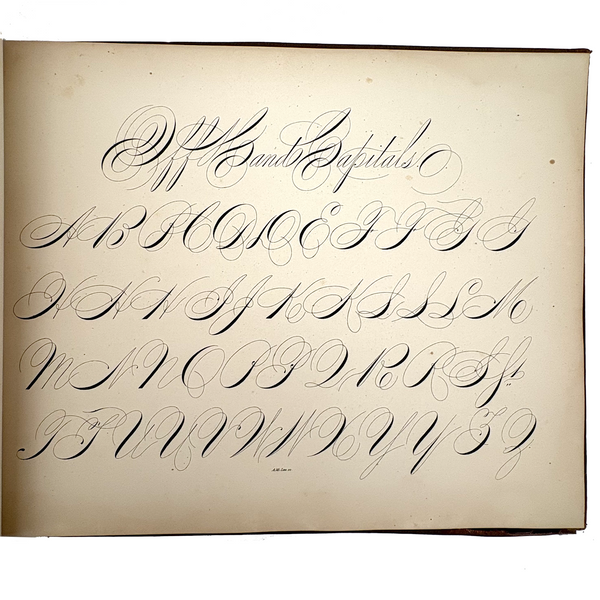 Off Hand Capitals.
A B P C D D E F F G G
H H H I J K K L L L M
M N N O P P Q R R S St
T T U V V W W X Y Y Z Z